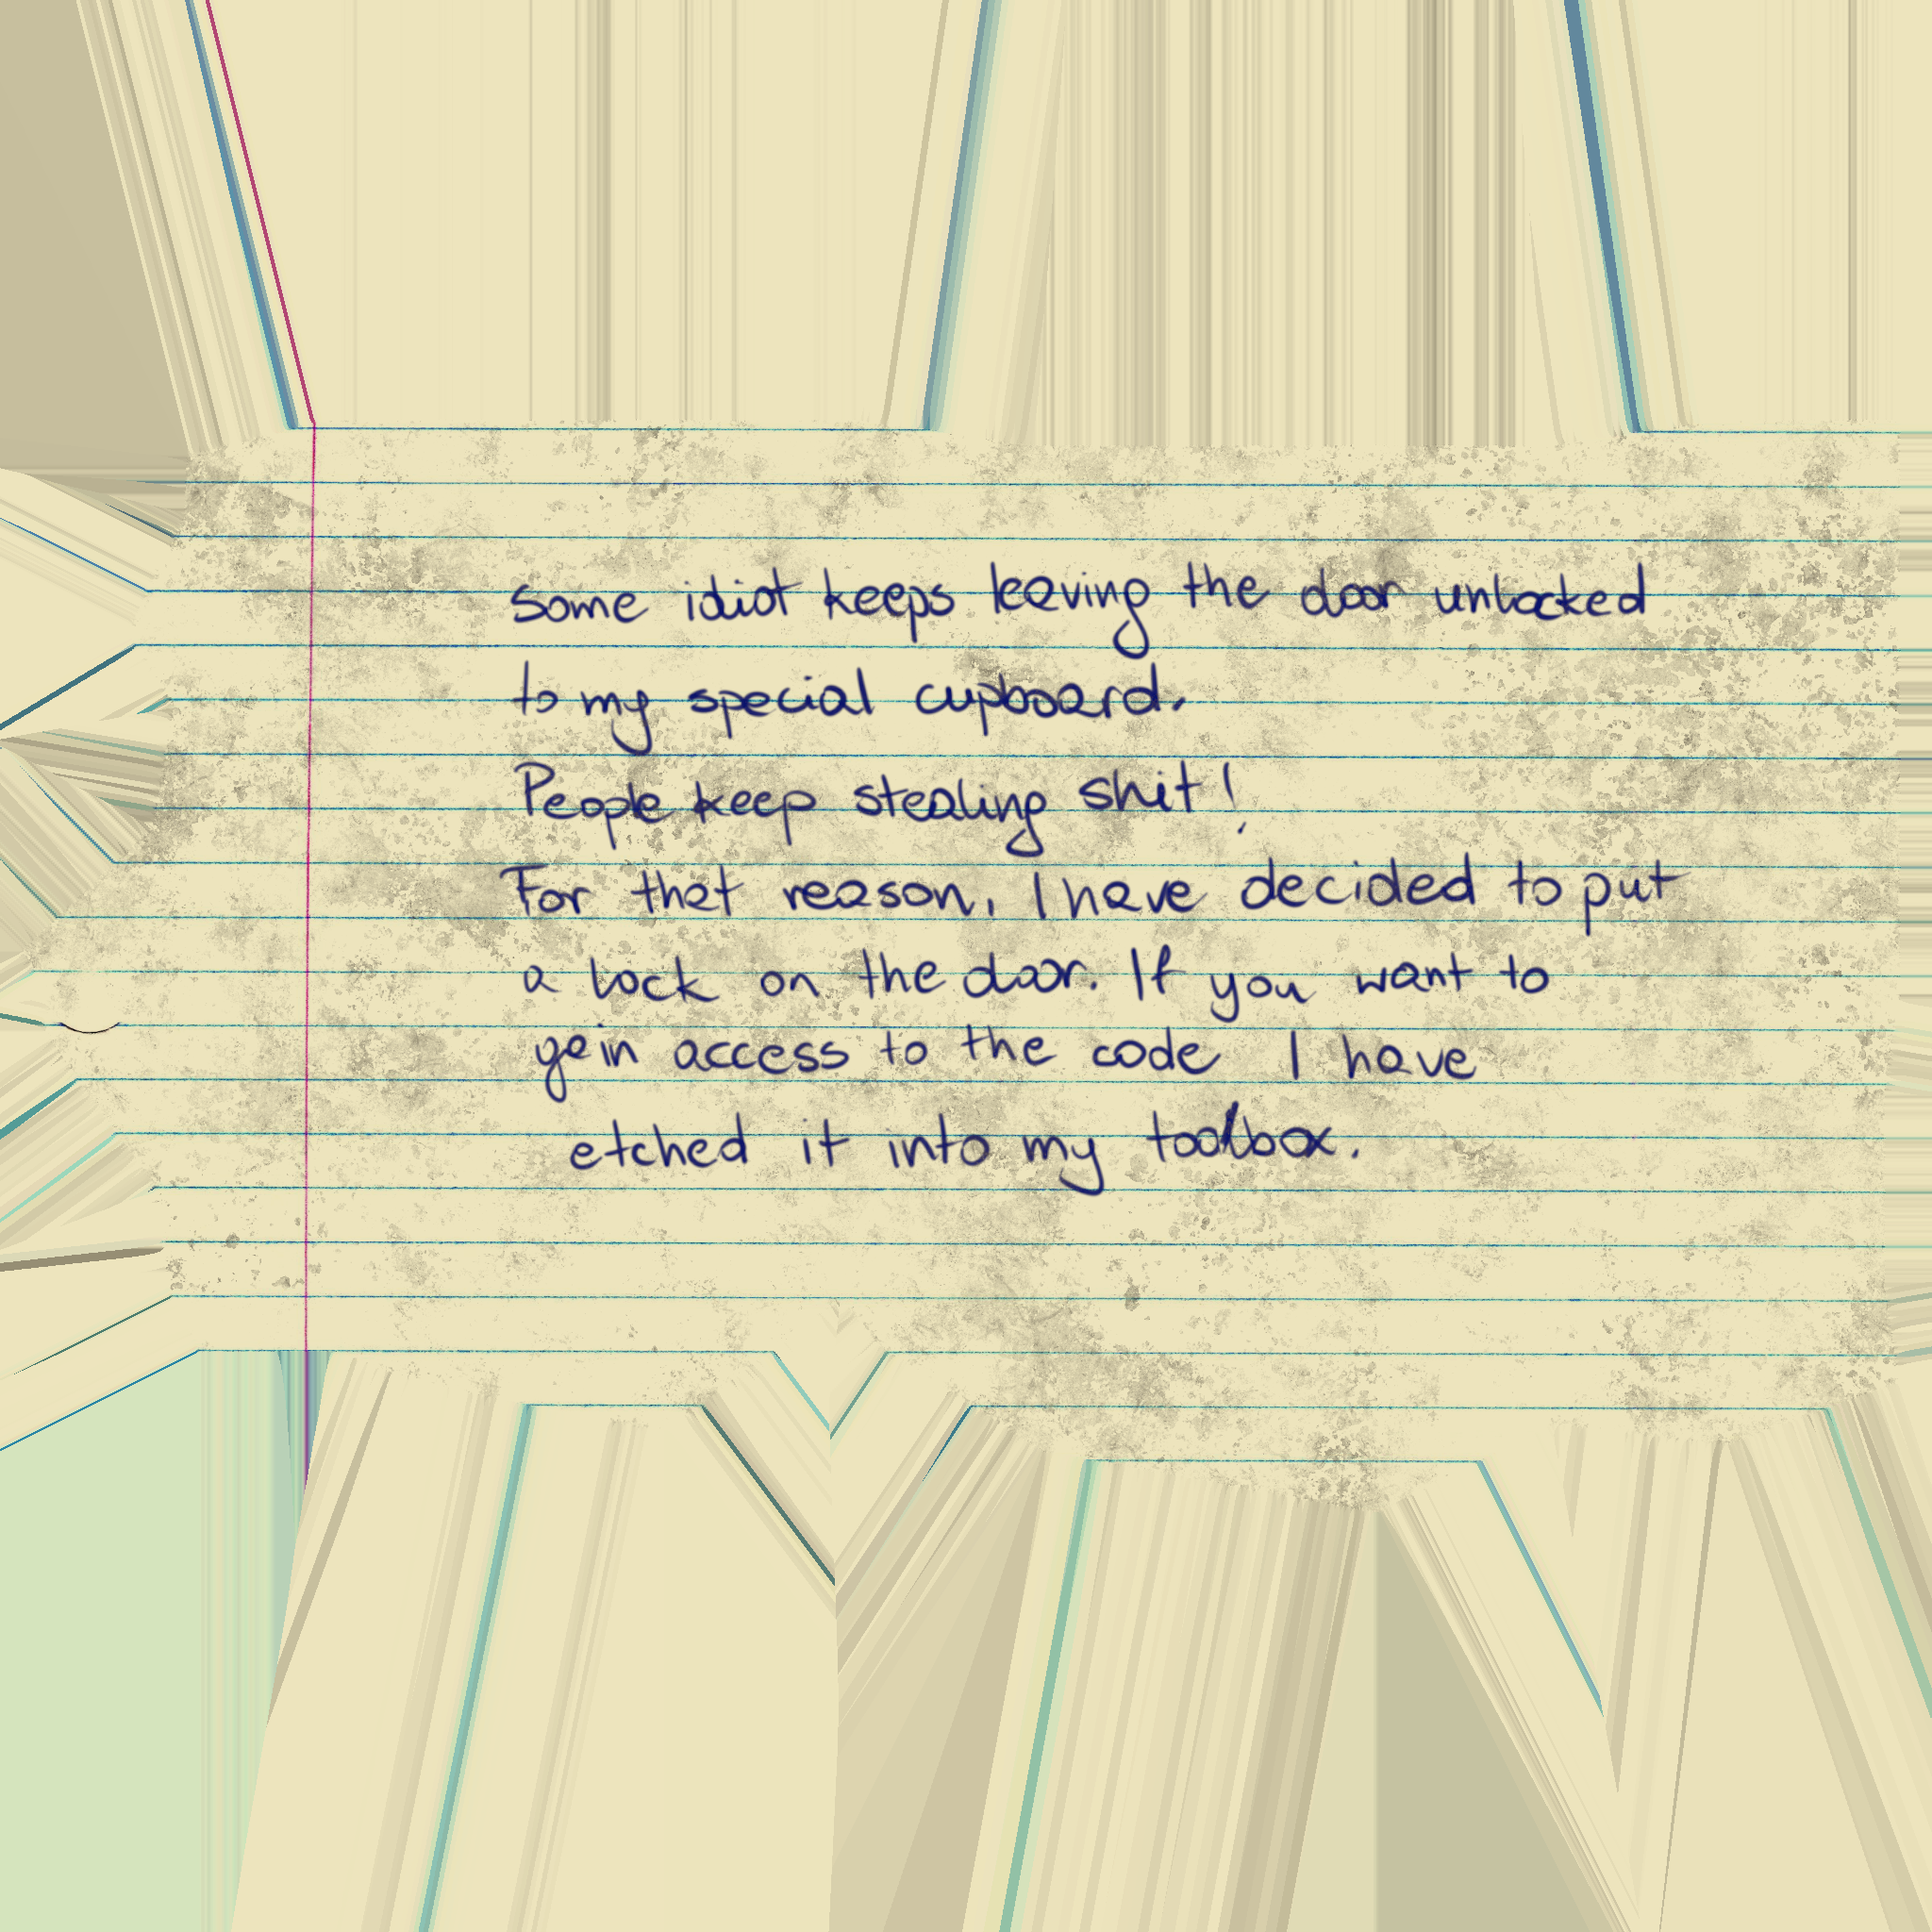 Some idiot keeps leaving the door unlocked
to my special cupboard.
People keep stealing shit!
For that reason, I have decided to put
a lock on the door. If you want to
gain access to the code I have
etched it into my toolbox.